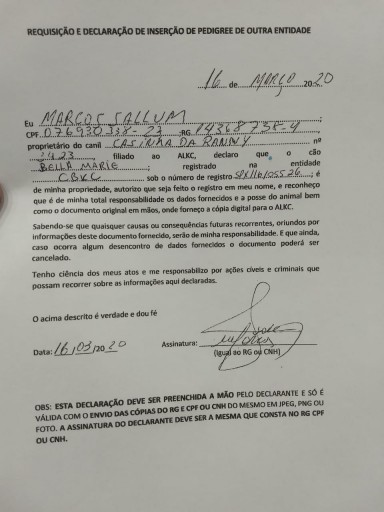 REQUISIÇÃO E DECLARAÇÃO DE INSERÇÃO DE PEDIGREE DE OUTRA ENTIDADE
16 de MARÇO 2020
Eu MARCOS SALLUM ;
CPF 076930338-23 ;RG 14368758-4 ;
proprietário do canil CASINHA DA RANNY nº
1423 filiado ao ALKC, declaro que o cão
BELLA MARIE ; registrado na entidade
CBKC sob o número de registro ; é
de minha propriedade, autorizo que seja feito o registro em meu nome, e reconheço
que é de minha total responsabilidade os dados fornecidos e a posse do animal bem
como o documento original em mãos, onde forneço a cópia digital para o ALKC.
Sabendo-se que quaisquer causas ou consequências futuras recorrentes, oriundos por
informações deste documento fornecido, serão de minha responsabilidade. E que ainda,
caso ocorra algum desencontro de dados fornecidos o documento poderá ser
cancelado.
Tenho ciência dos meus atos e me responsabilizo por ações cíveis e criminais que
possam recorrer sobre as informações aqui declaradas.
O acima descrito é verdade e dou fé
Data: 16/03/2020 Assinatura:
(Igual ao RG ou CNH)
OBS: ESTA DECLARAÇÃO DEVE SER PREENCHIDA A MÃO PELO DECLARANTE E SÓ É
VÁLIDA COM O ENVIO DAS CÓPIAS DO RG E CPF OU CNH DO MESMO EM JPEG, PNG OU
FOTO. A ASSINATURA DO DECLARANTE DEVE SER A MESMA QUE CONSTA NO RG CPF
OU CNH.